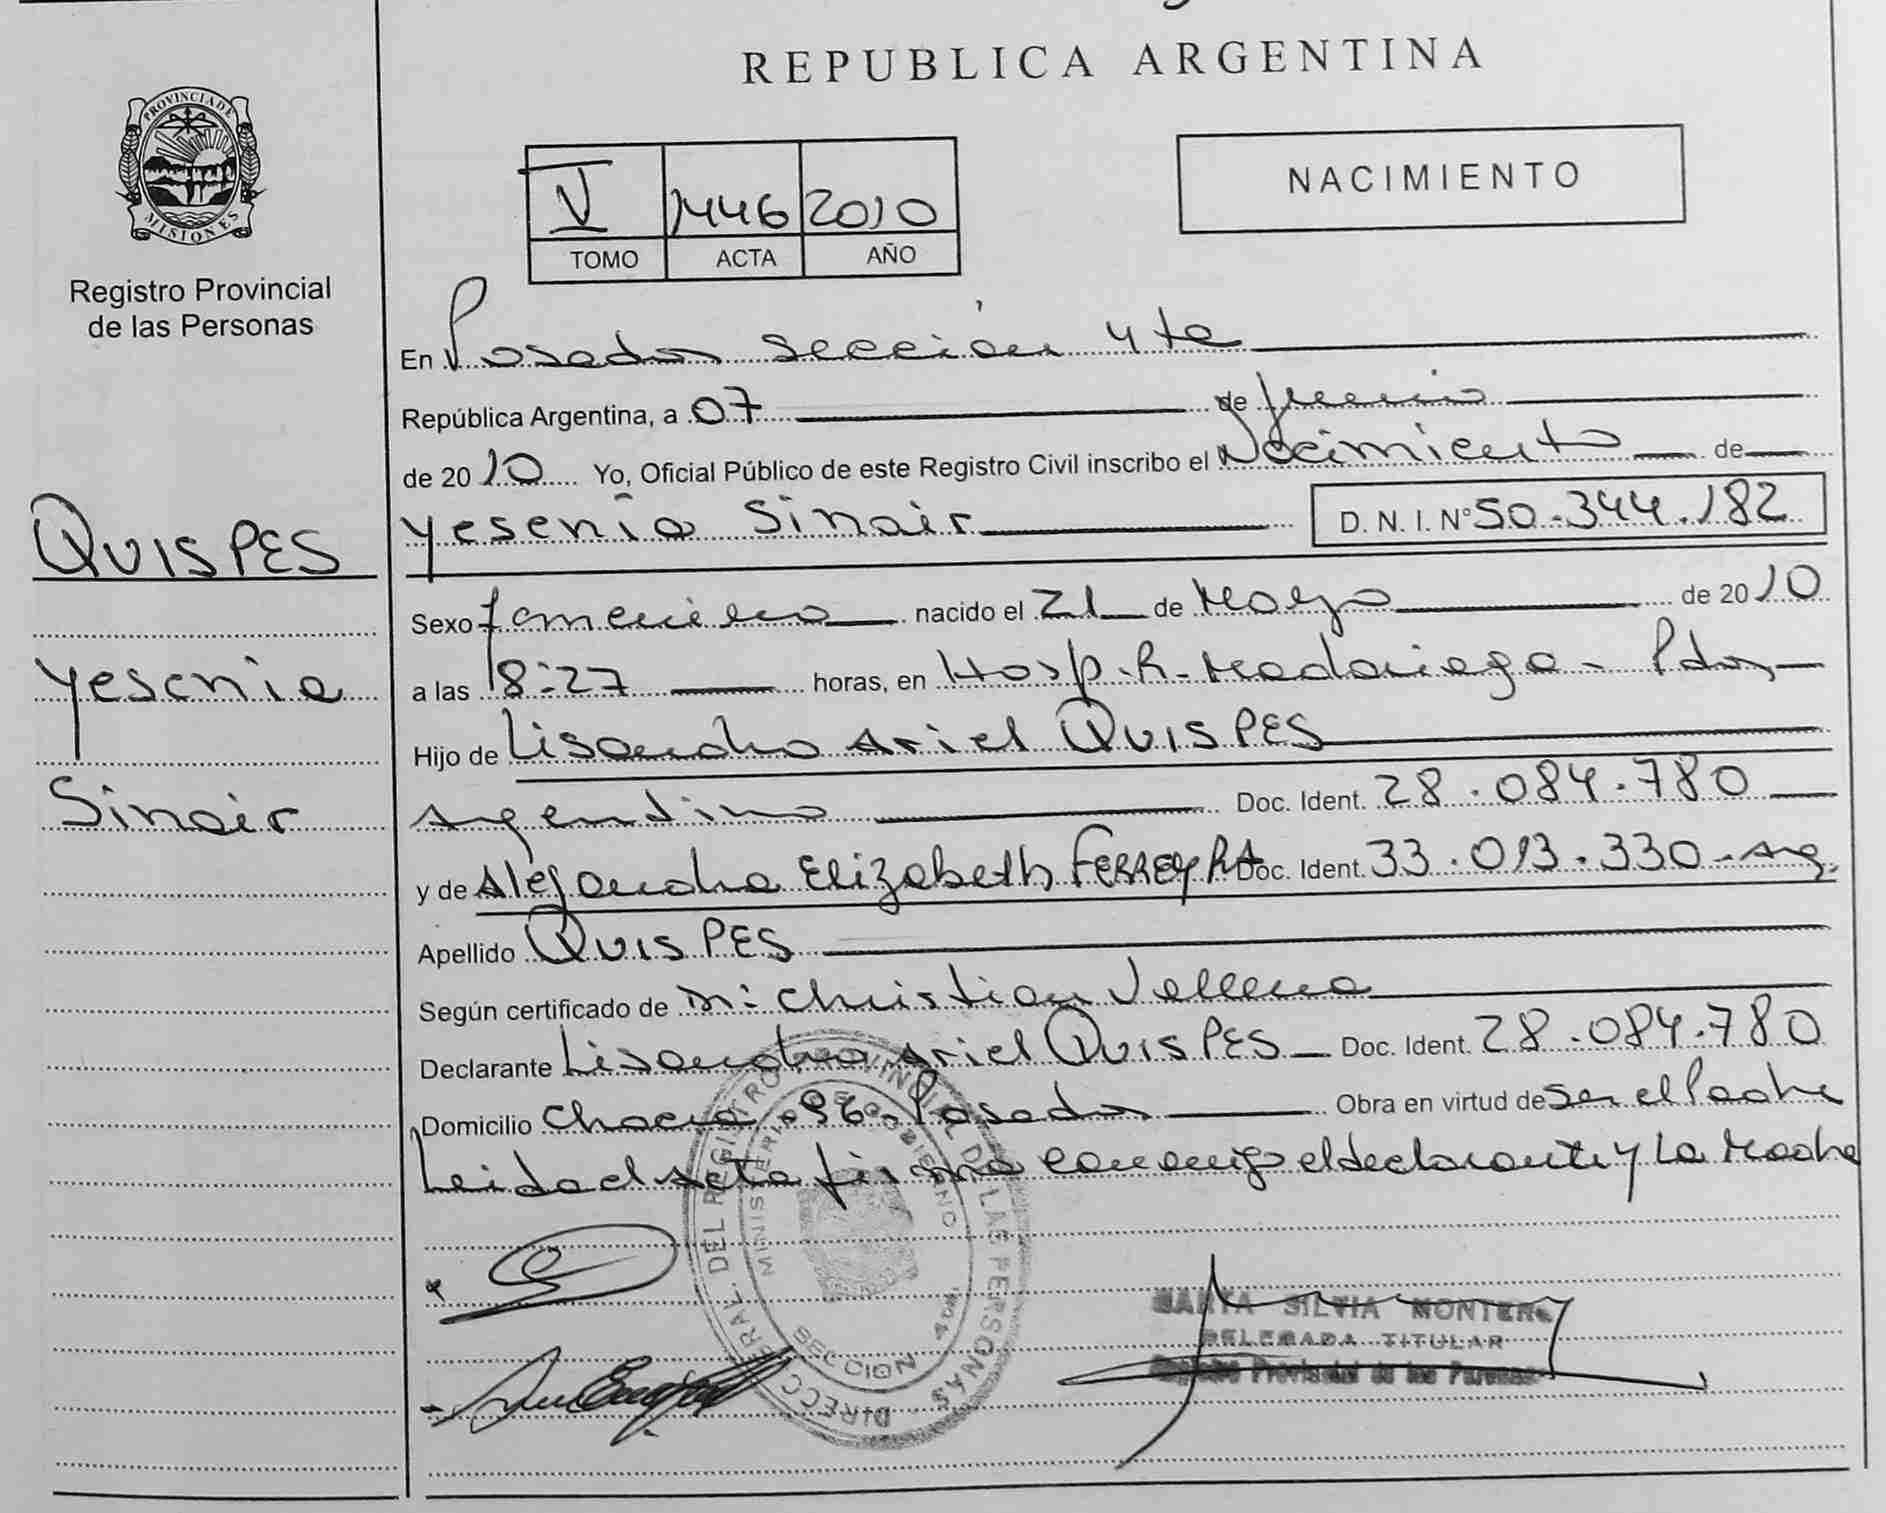 REPUBLICA ARGENTINA
PROVINCIA DE
MISIONES
Registro Provincial
de las Personas
V 1446 2010
TOMO ACTA AÑO
NACIMIENTO
En Posadas sección 4ta
República Argentina, a 07 de Junio
de 2010 Yo, Oficial Público de este Registro Civil inscribo el Nacimiento de
Yesenia Sinair D. N. I. N° 50.344.182
QUISPES
Yesenia
Sinair
Sexo femenino nacido el 21 de Mayo de 2010
a las 18:27 horas, en Hosp. R. Madariaga - Pdas
Hijo de Lisandro Ariel QUISPES
Argentino Doc. Ident. 28.084.780
y de Alejandra Elizabeth FERREYRA Doc. Ident. 33.013.330 - Arg.
Apellido QUISPES
Según certificado de Christian
Declarante Lisandro Ariel QUISPES Doc. Ident. 28.084.780
Domicilio Chacra 96 - Posadas Obra en virtud de ser el Padre
Leida el Acta firma conmigo el declarante y La Madre
DIRECC GRAL. DEL REGISTRO PROVINCIAL DE LAS PERSONAS
MINISTERIO DE GOBIERNO
SECCION 4ta.
MARTA SILVIA MONTERO
DELEGADA TITULAR
Registro Provincial de las Personas